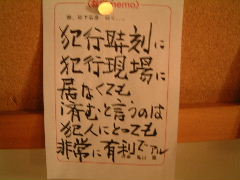 memo
犯行時刻に
犯行現場に
居なくても
済むと言うのは
犯人にとっても
非常に有利でアル